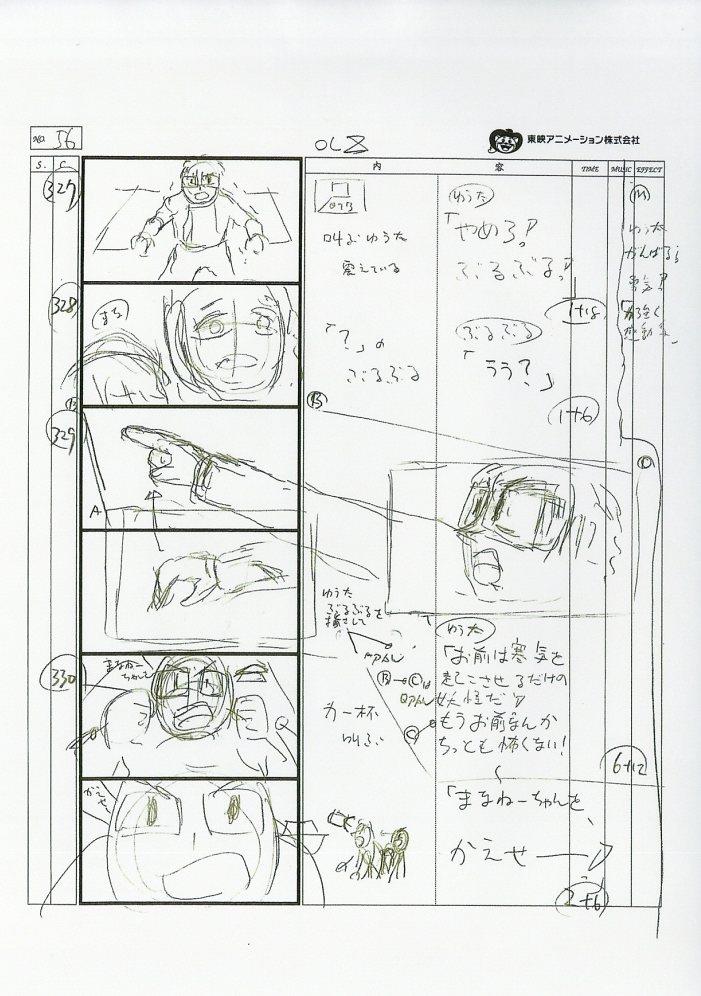 NO. 56
東映アニメーション株式会社
S.
C.
内
容
TIME
MUSIC
EFFECT
327
叫ぶゆうた
震えている
ゆうた
「やめろっ!
ぶるぶるっ!」
1+18
M
ゆうた
がんばる
勇気!
力強く
感動
328
まち
「?」の
ぶるぶる
ぶるぶる
「うう?」
1+6
B
B
329
A
D
ゆうた
ぶるぶるを
指さして
B→Cは
QPAN
C
ゆうた
「お前は寒気を
起こさせるだけの
妖怪だ!
もうお前なんか
ちっとも怖くない!
6+12
330
まなねーちゃんを
力一杯
叫ぶ
「まなねーちゃんを、
かえせ
かえせー
2+6